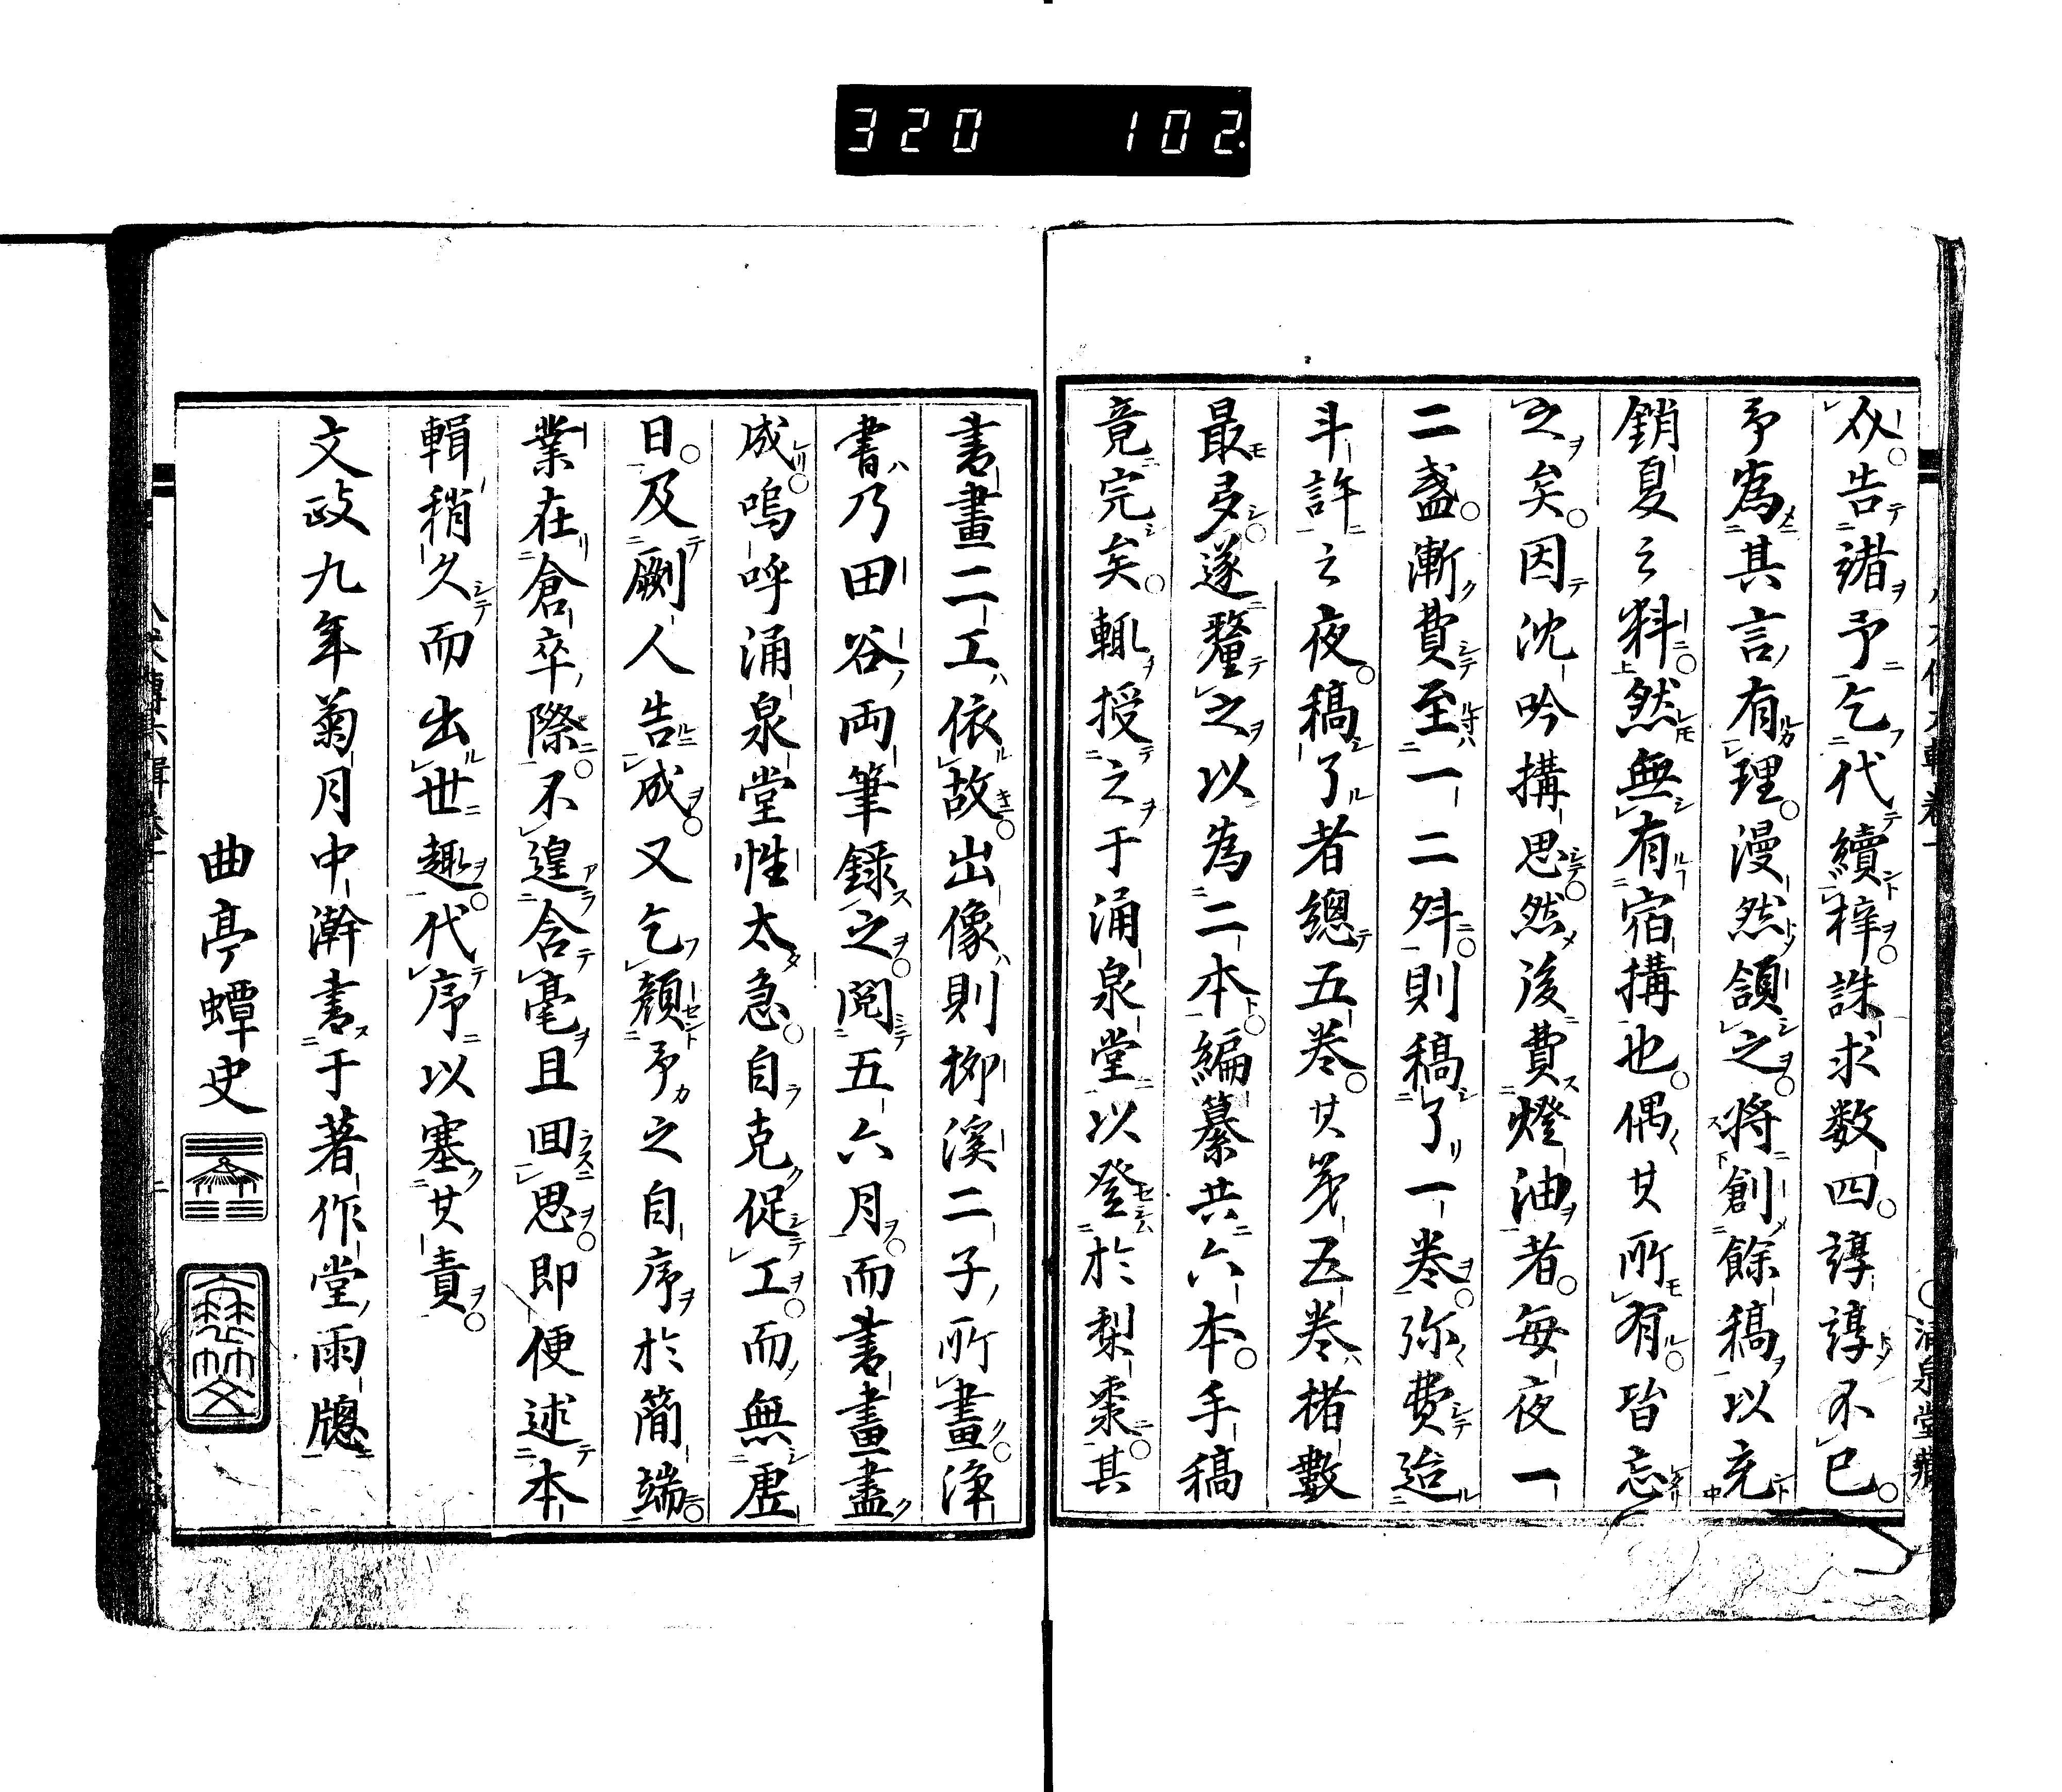 320 102.
告諸予乞代續梓誅求数四諄諄不已
予為其言有理漫然頷之将創餘稿以充
銷夏之料然無有宿搆也偶其所有皆忘
之矣因沈吟搆思然後費燈油者毎夜一
二盞漸費至一二舛則稿了一巻弥費迨
斗許之夜稿了者總五巻其第五巻楮數
最多遂釐之以為二本編纂共六本手稿
竟完矣輙授之于涌泉堂以登於梨棗其
書畫二工依故出像則栁溪二子所畫浄
書乃田谷両筆録之閲五六月而書畫盡
成嗚呼涌泉堂性太急自克促工而無虚
日及劂人告成又乞顔予之自序於簡端
業在倉卒際不遑含毫且囬思即便述本
輯稍久而出世趣代序以塞其責
文政九年菊月中澣書于著作堂雨牕
曲亭蟫史